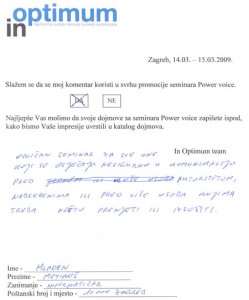 optimum
in
Zagreb, 14.03. – 15.03.2009.
Slažem se da se moj komentar koristi u svrhu promocije seminara Power voice.
DA
NE
Najljepše Vas molimo da svoje dojmove sa seminara Power voice zapišete ispod,
kako bismo Vaše impresije uvrstili u katalog dojmova.
In Optimum team
ODLIČAN SEMINAR ZA SVE ONE
KOJI SE OSJEĆAJU NESIGURNO U KOMUNIKACIJI
PRED AUTORITETOM,
NADREĐENIMA ILI PRED VIŠE OSOBA KOJIMA
TREBA NEŠTO PRENIJETI ILI IZLOŽITI.
Ime - MLADEN
Prezime -
Zanimanje - INFORMATIČAR
Poštanski broj i mjesto - 10000 ZAGREB